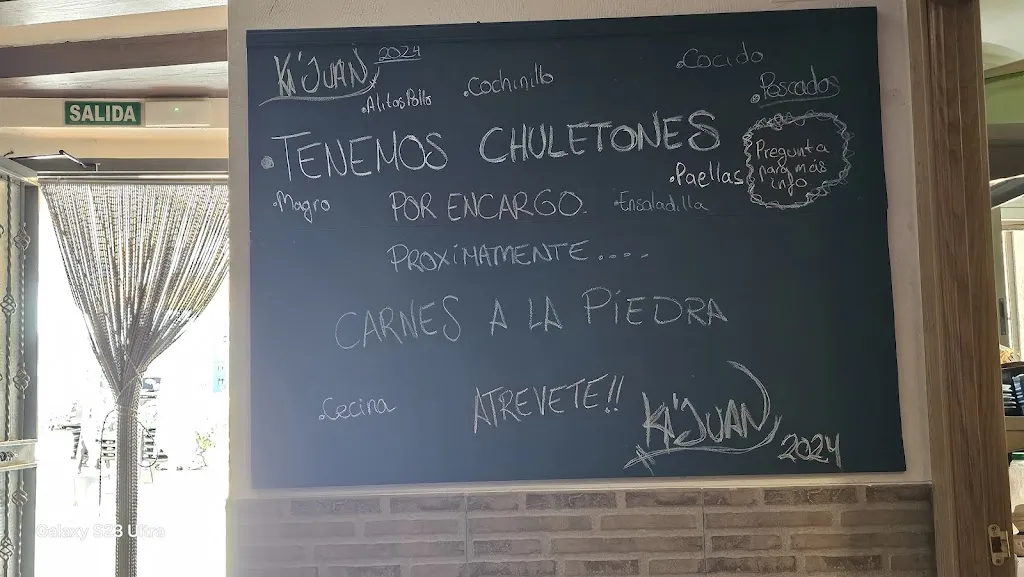 SALIDA
KA'JUAN 2024
•Alitas Pollo
•Cochinillo
•Cocido
•Pescados
•TENEMOS CHULETONES
•Paellas
Pregunta
para más
info
•Magro
POR ENCARGO.
•Ensaladilla
PROXIMAMENTE....
CARNES A LA PIEDRA
•Cecina
ATREVETE!!
KA'JUAN
2024
Galaxy S23 Ultra